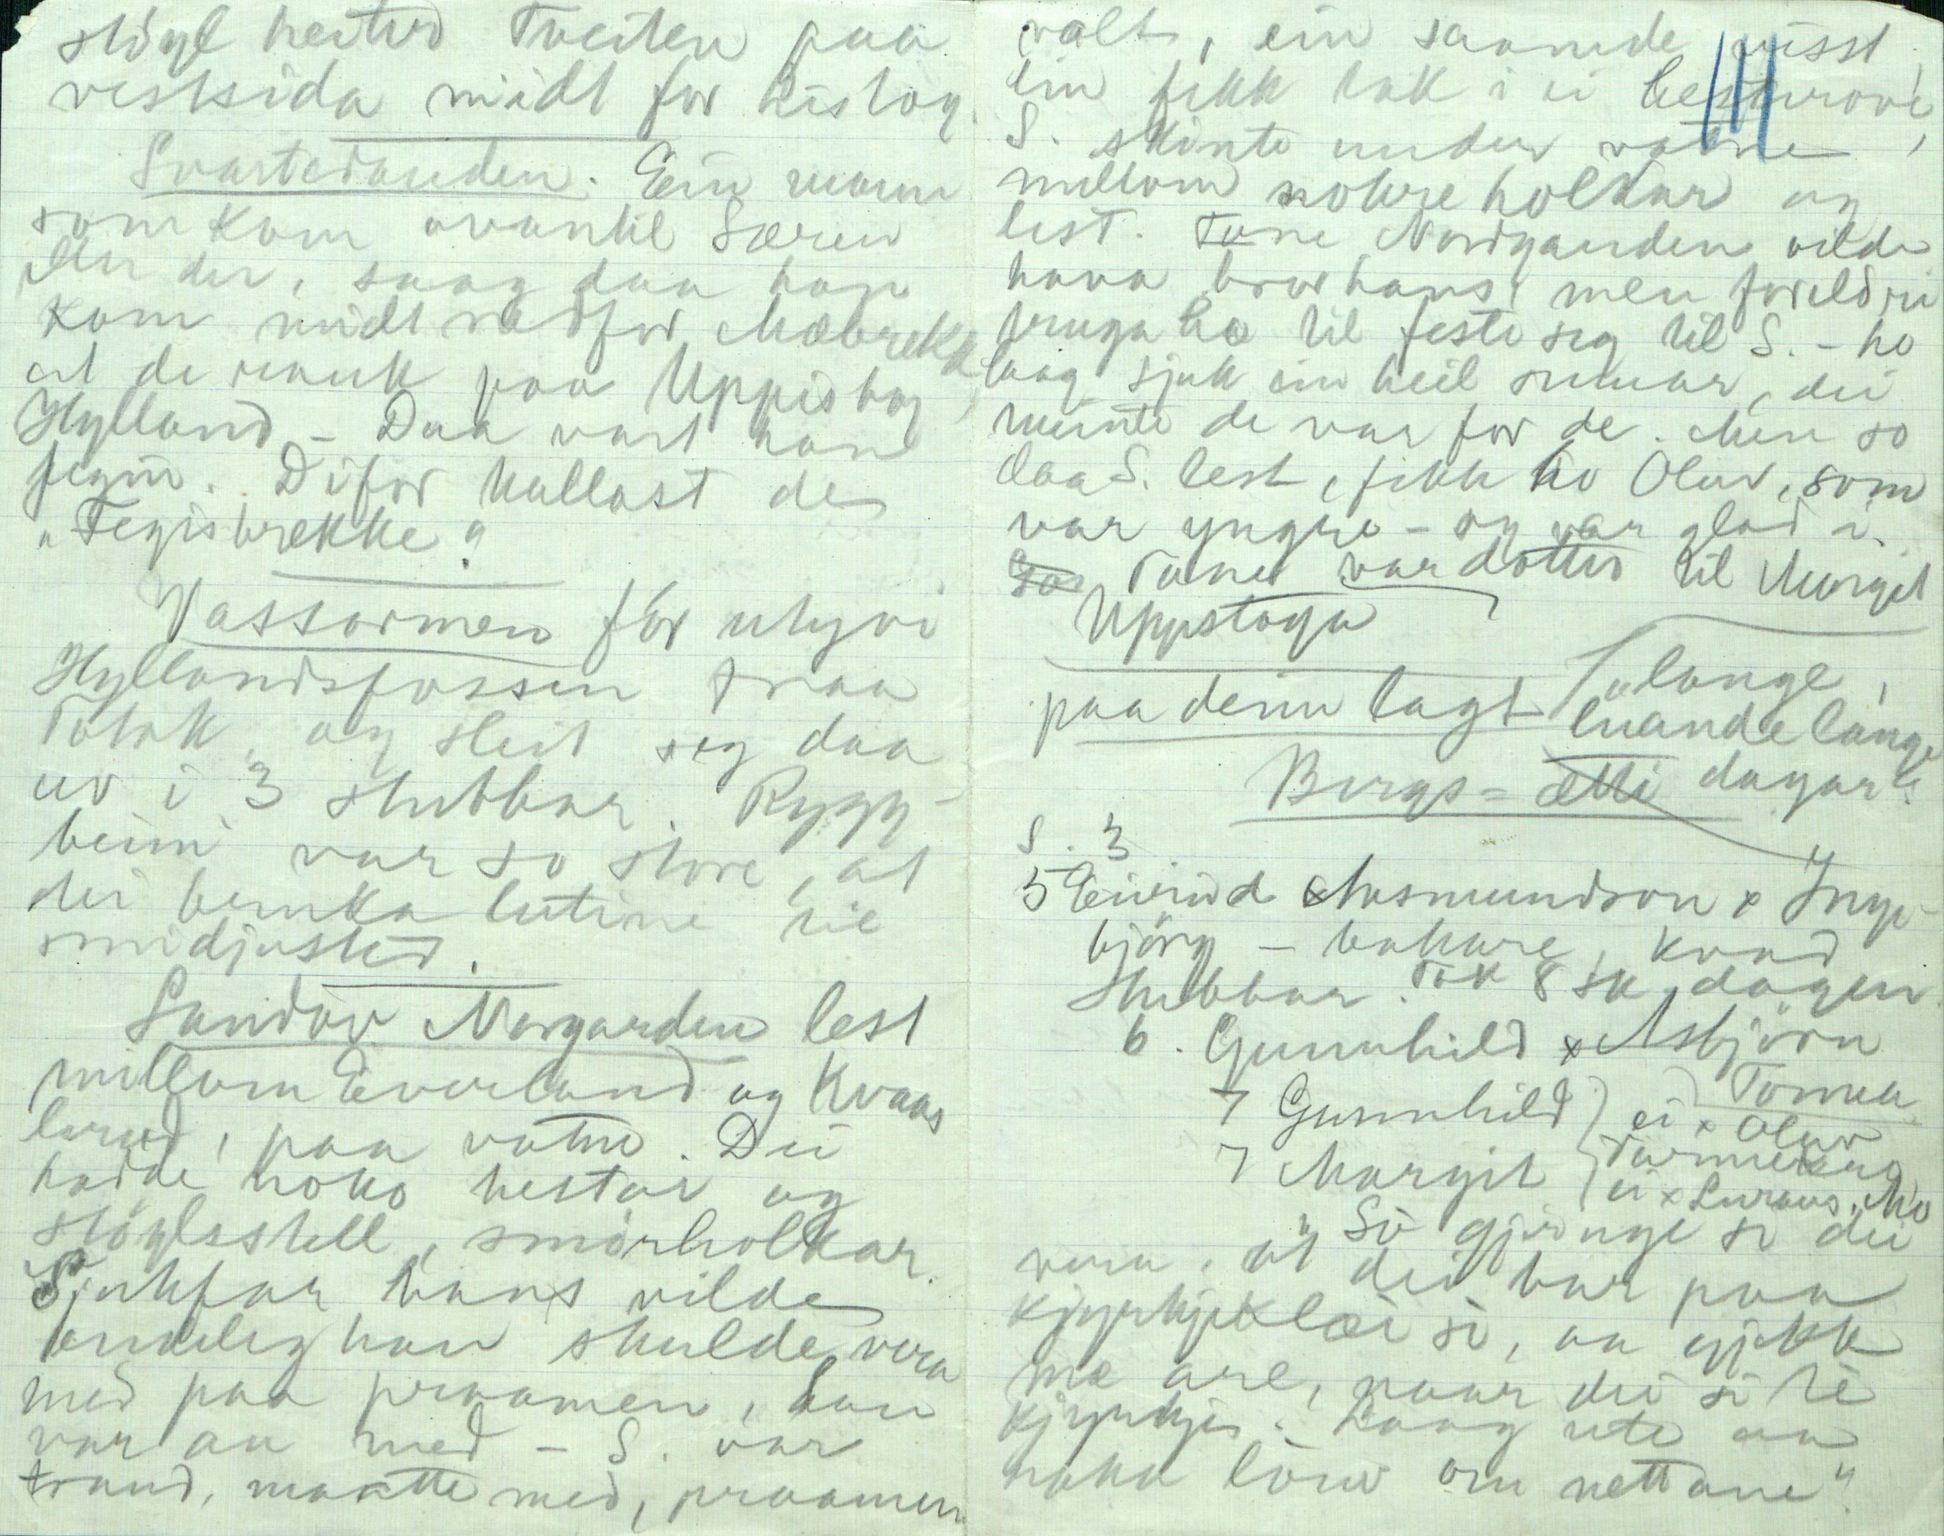 stöyl heitur Tveiten paa
vestsida midt for Listog.
Svartedauden. Ein mann
som kom ovantil Særen
eller der, saag daa han
kom midt nedfor Mæbrekk
at de rauk paa Uppistog
Hylland – Daa vart han
fegin. Difor kallast de
"Feginsbrekke"
Vassormen fór utyvi
Hyllandsfossen fraa
Totak, og sleit seg daa
uv i 3 stubbar. Rygg-
beini var so store, at
dei bruka lutine til
smidjusted.
Sandov Norgarden lest
millom Everland og Kvaas
larud, paa vatne. Dei
hadde noko hestar og
stöylsstell, smörholkar.
Sjukfar hans vilde
endeleg han skulde vera
med paa praamen, han
var au med – S. var
traud, maatte med, praamen
valt, ein saamde visst,
ein fekk tak i ei hesturove,
S. skinte under vatne
millom nokre holkar og
lest. Tone Nordgarden vilde
hava bror hans, men foreldri
truga ho til feste seg til S. – ho
laag sjuk ein heil sumar, dei
meinte de var for de. Men so
daa S. lest, fekk ho Olav, som
var yngre – og var glad i.
Tone var dotter til Margit
Uppistoga
paa deim lagt "lange,
luande lange
Bergs=ætti dagar".
S. 3
5 Eivind Aasmundson x Inge-
björg – bakare, kvad
stubbar. Tok 8 sk. dagen
6. Gunnhild x Asbjörn
7 Gunnhild } ei x Olav
7 Margit } ei x Luraas, Mo
"So gjönge so dei
vera, at dei bar paa
kjyrkjeklæi si, aa gjekk
mæ are, naar dei si te
kjyrkje. Laag ute aa
noko löio om nettane".